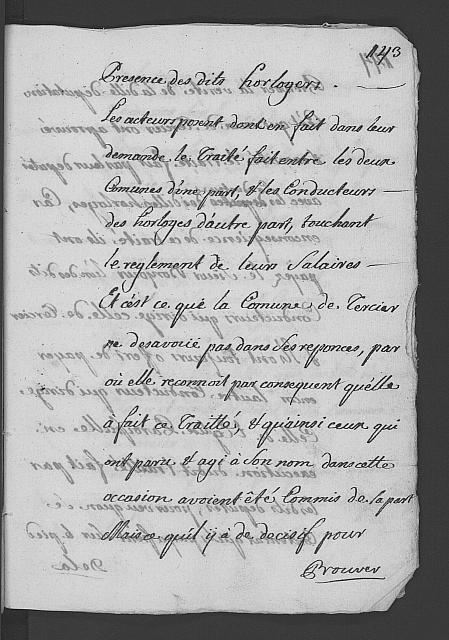 143
Presence des dits horlogers.
Les acteurs posent donc en fait dans leur
demande le Traité fait entre les deux
Comunes d'une part, & les Conducteurs
des horloges d'autre part, touchant
le reglement de leurs Salaires
Et c'est ce que la Comune de Tercier
ne desavoüe pas dans ses reponces, par
où elle reconnoit par consequent qu'elle
à fait ce Traitté, & qu'ainsi ceux qui
ont paru & agi à son nom dans cette
occasion avoient été Commis de sa part
Mais ce qu'il ÿ à de decisif pour
Prouver